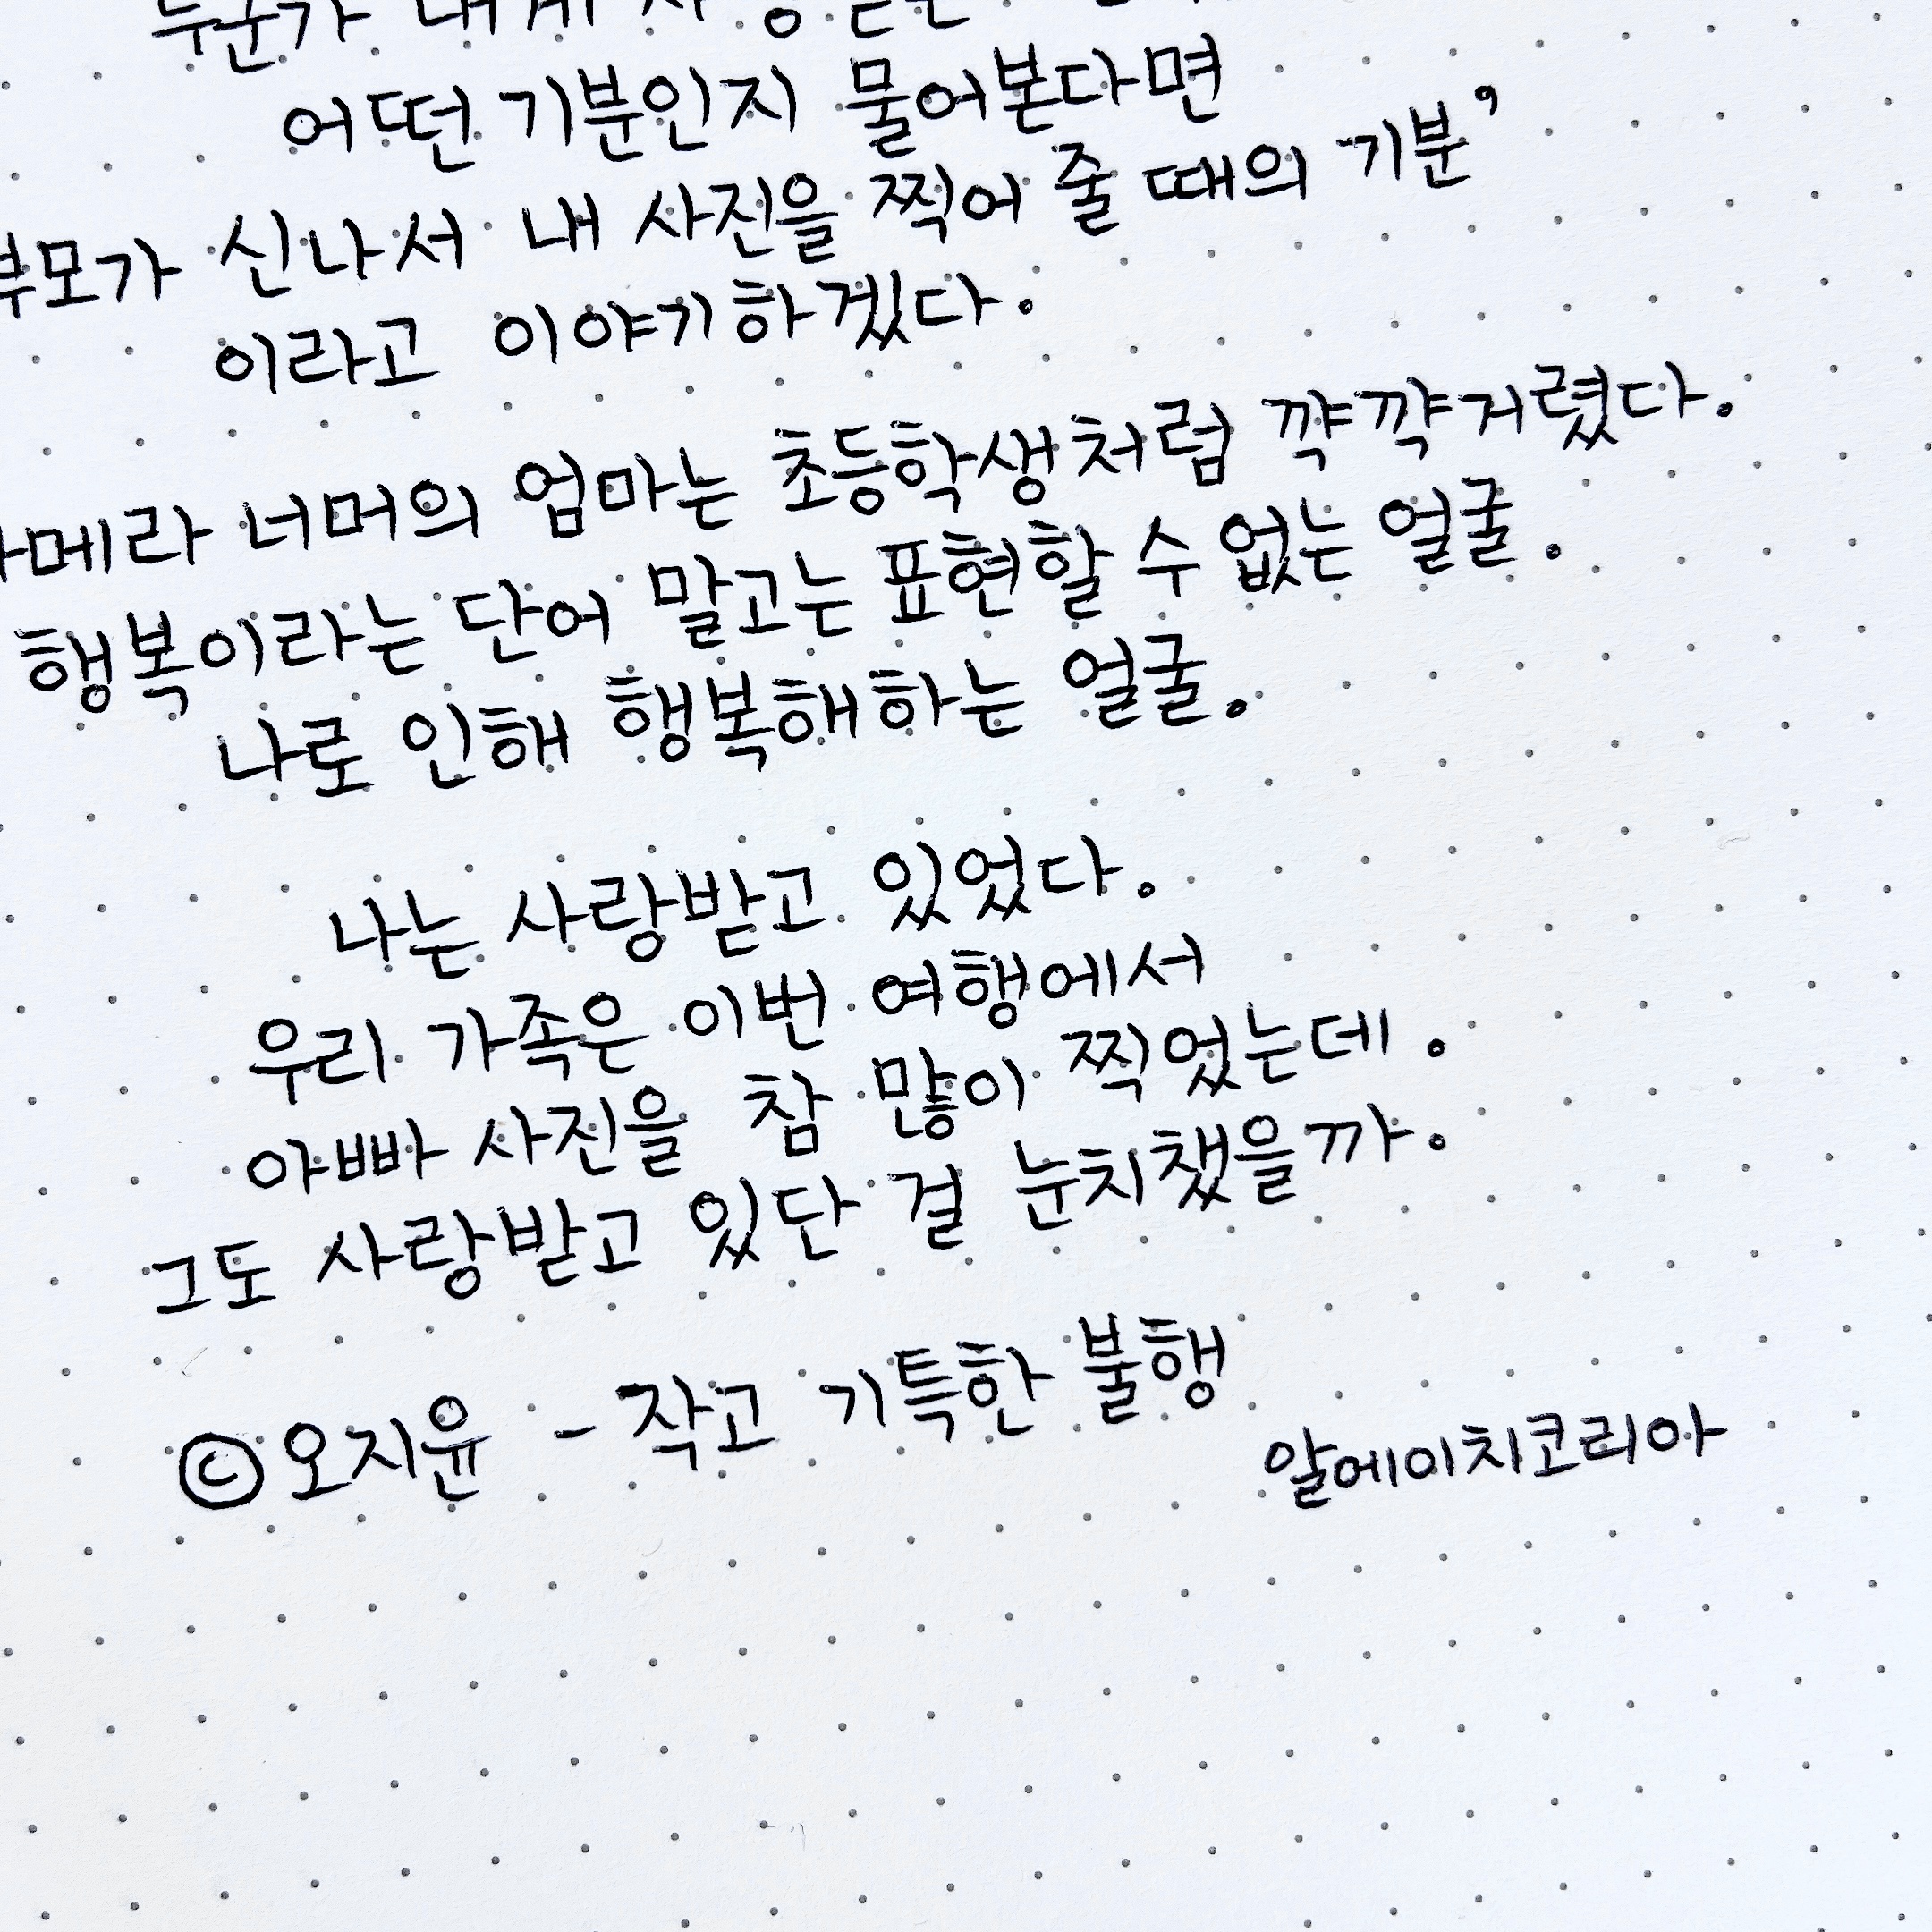 누군가 내게
어떤 기분인지 물어본다면
부모가 신나서 내 사진을 찍어 줄 때의 기분’
이라고 이야기하겠다.
카메라 너머의 엄마는 초등학생처럼 꺅꺅거렸다.
행복이라는 단어 말고는 표현할 수 없는 얼굴.
나로 인해 행복해하는 얼굴.
나는 사랑받고 있었다.
우리 가족은 이번 여행에서
아빠 사진을 참 많이 찍었는데.
그도 사랑받고 있단 걸 눈치챘을까.
©오지윤 - 작고 기특한 불행
알에이치코리아